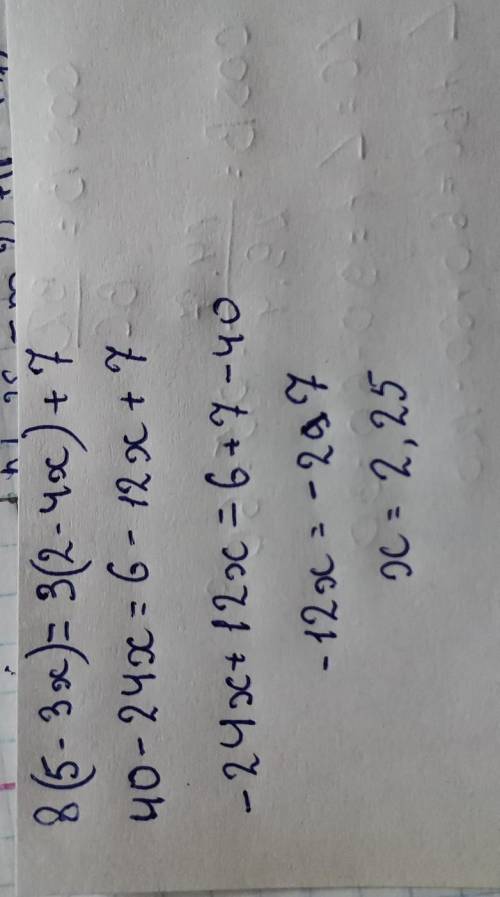 8(5-3x)=3(2-4x)+7
40-24x=6-12x+7
-24x+12x=6+7-40
-12x=-27
x=2,25